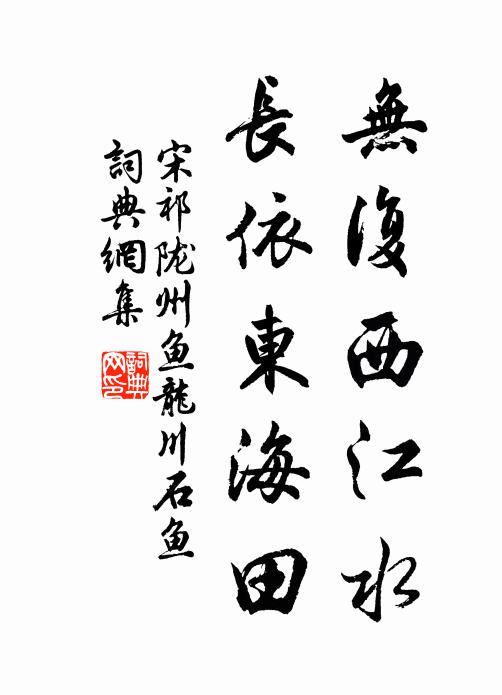 無復西江水
長依東海田
宋祁陇州鱼龍川石鱼
詞典網集
詞典網印